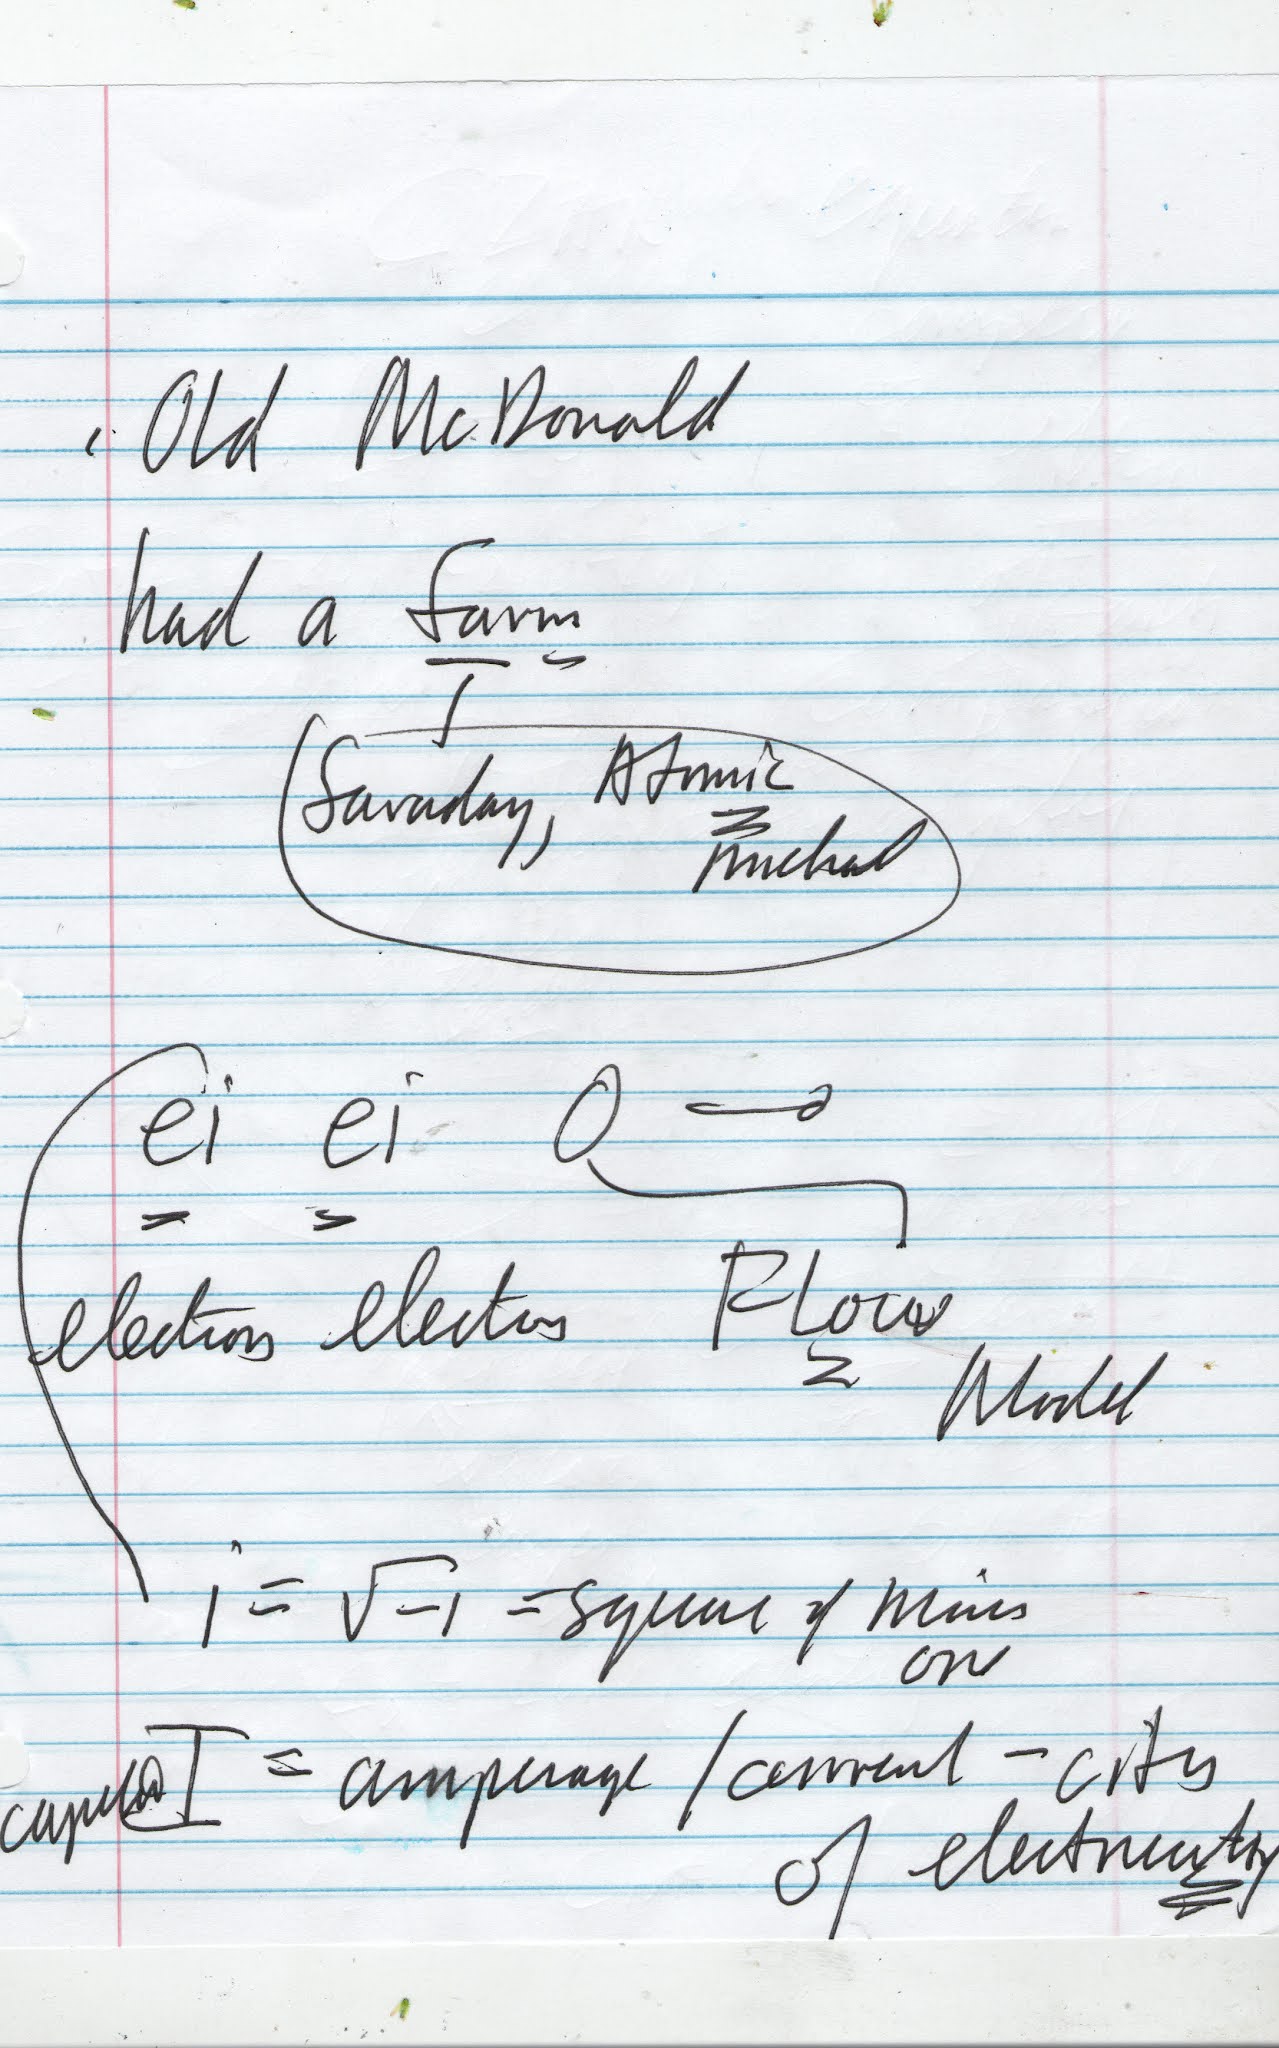 Old McDonald
had a farm
faraday, Atomic
ei ei O
electrons electrons Flow
Model
i = √-1 = square of minus
one
I = amperage / current -
of electricity